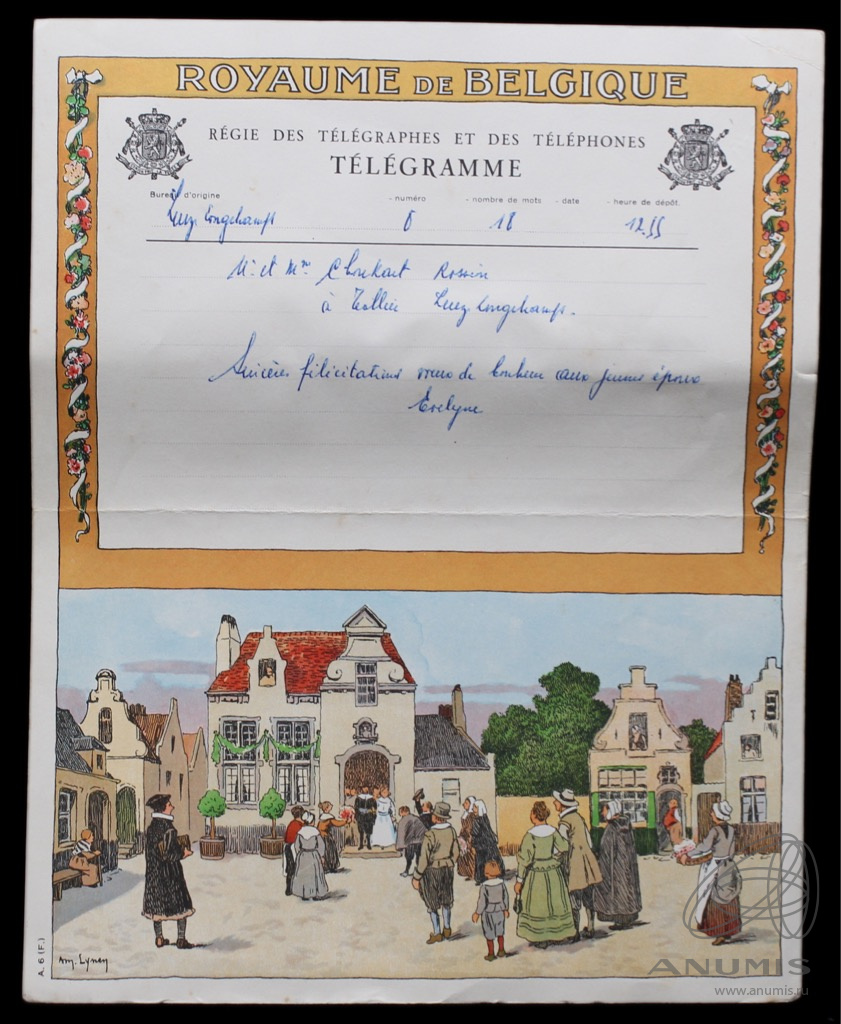 ROYAUME DE BELGIQUE
RÉGIE DES TÉLÉGRAPHES ET DES TÉLÉPHONES
TÉLÉGRAMME
Bureau d'origine - numéro - nombre de mots - date - heure de dépôt.
Longchamps 8 18 12.55
Mr et Mme
à Longchamps.
Sincères félicitations voeux de bonheur aux jeunes époux
Evelyne
A. 6 (F.)
Am. Lynen
ANUMIS
www.anumis.ru